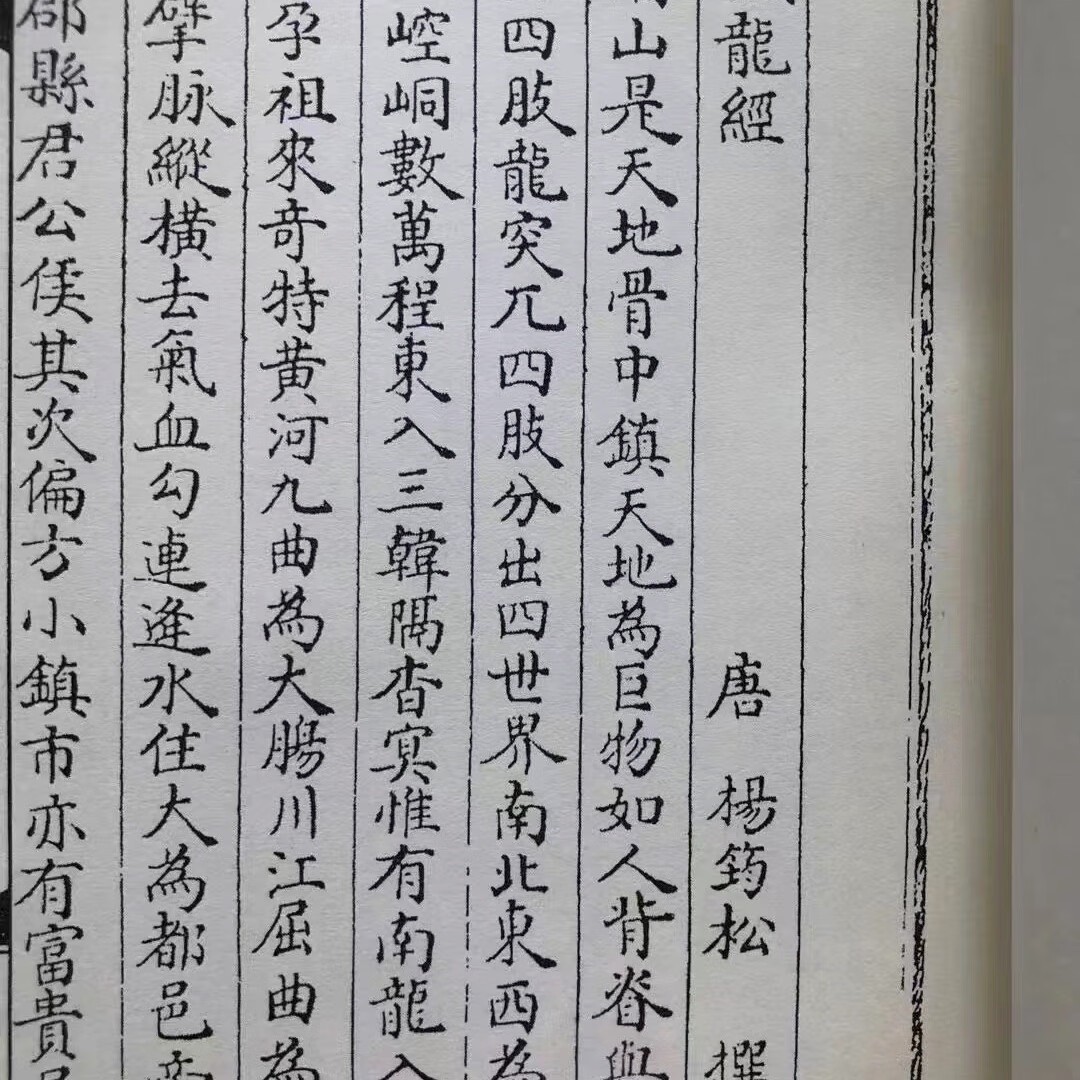 龍經 唐 楊筠松 撰
山是天地骨中鎮天地為巨物如人背脊與
四肢龍突兀四肢分出四世界南北東西為
崆峒數萬程東入三韓隔杳冥惟有南龍入
孕祖來奇特黃河九曲為大腸川江屈曲為
擘脉縱横去氣血勾連逢水住大為都邑
郡縣君公侯其次偏方小鎮市亦有富貴